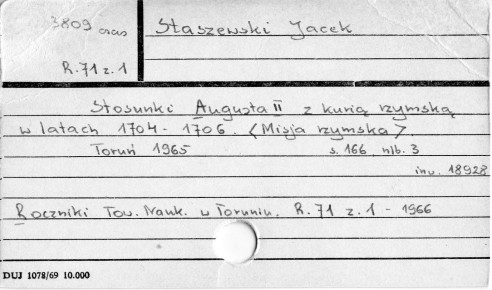 3809 czas
Staszewski Jacek
R.71 z.1
Stosunki Augusta II z kurią rzymską
w latach 1704-1706. <Misja rzymska>.
Toruń 1965 s. 166, nlb. 3
inw. 18928
Roczniki Tow. Nauk. w Toruniu. R. 71 z. 1 - 1966
DUJ 1078/69 10.000